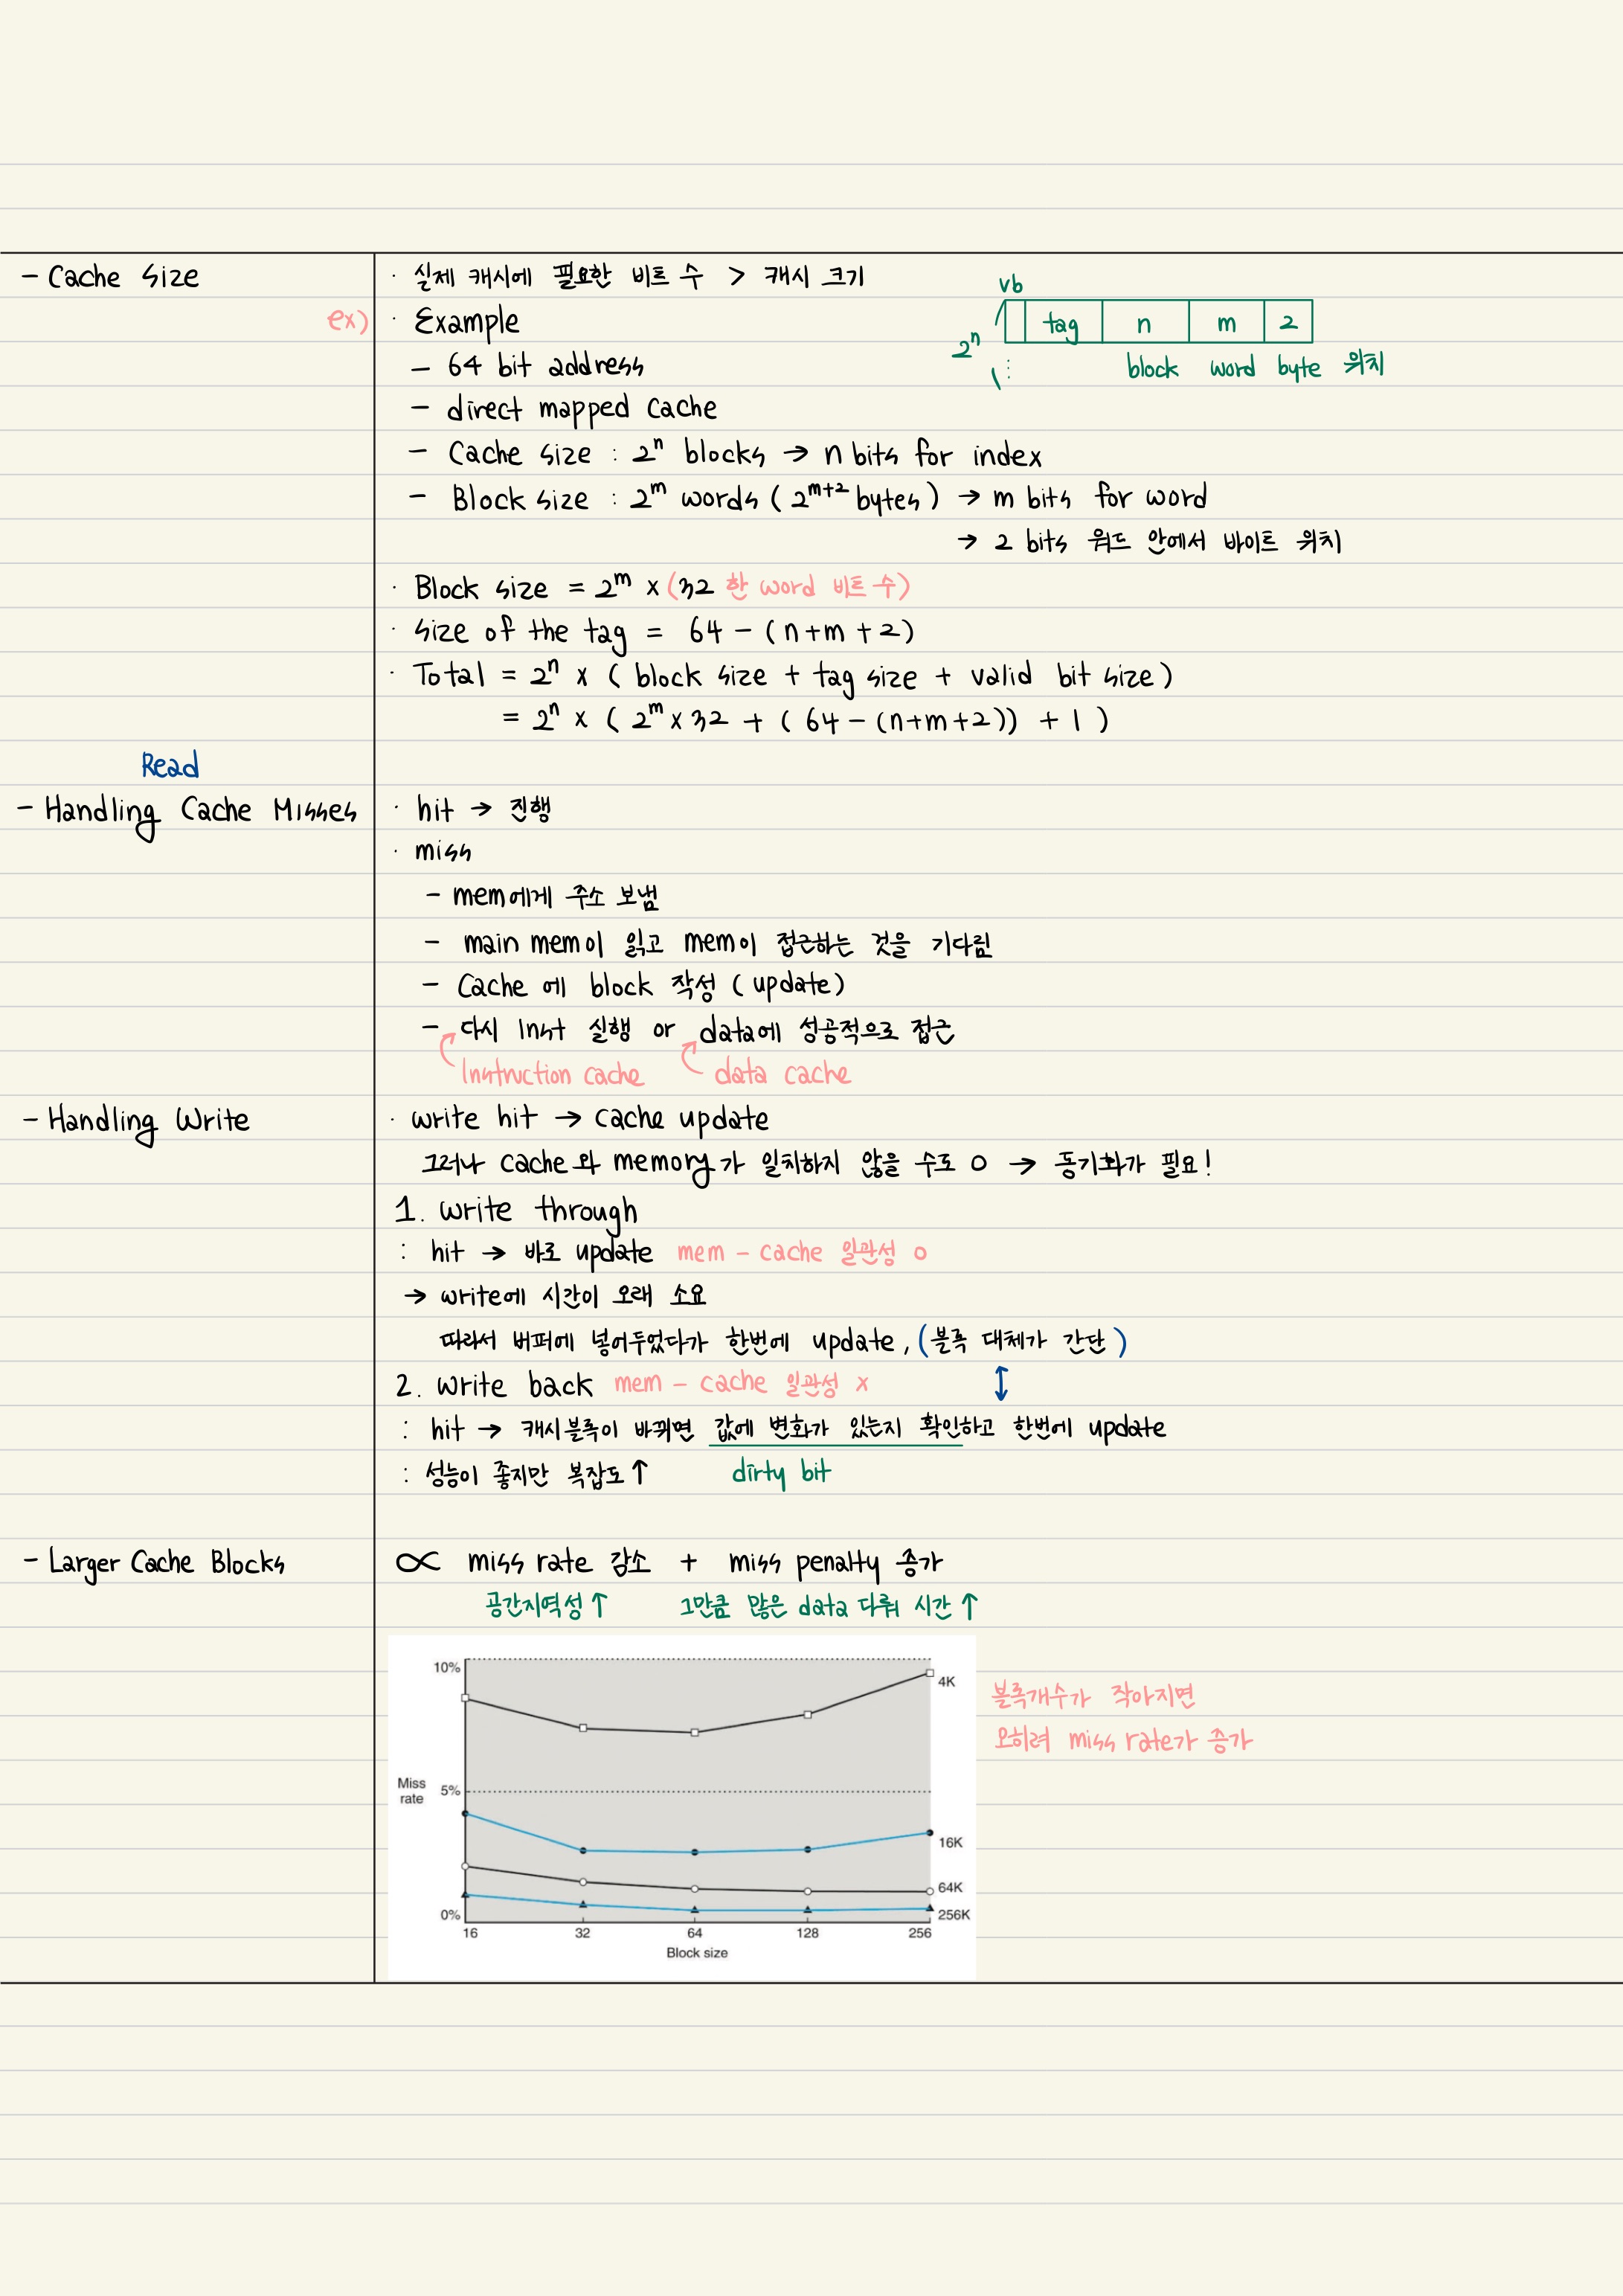 - Cache size
· 실제 캐시에 필요한 비트 수 > 캐시 크기
vb
ex)
· Example
tag n m 2
2ⁿ
- 64 bit address
⋮ block word byte 위치
- direct mapped cache
- Cache size : 2ⁿ blocks → n bits for index
- Block size : 2ᵐ words (2ᵐ⁺² bytes) → m bits for word
→ 2 bits 워드 안에서 바이트 위치
· Block size = 2ᵐ × (32 한 word 비트 수)
· size of the tag = 64 - (n+m+2)
· Total = 2ⁿ × ( block size + tag size + valid bit size )
= 2ⁿ × ( 2ᵐ × 32 + ( 64 - (n+m+2)) + 1 )
Read
- Handling Cache Misses
· hit → 진행
· miss
- mem에게 주소 보냄
- main mem이 읽고 mem이 접근하는 것을 기다림
- Cache 에 block 작성 ( update )
- 다시 Inst 실행 or data에 성공적으로 접근
Instruction cache data cache
- Handling Write
· write hit → cache update
그러나 cache와 memory가 일치하지 않을 수도 O → 동기화가 필요!
1. write through
: hit → 바로 update mem - cache 일관성 O
→ write에 시간이 오래 소요
따라서 버퍼에 넣어두었다가 한번에 update, (블록 대체가 간단)
2. write back mem - cache 일관성 x
↕
: hit → 캐시블록이 바뀌면 값에 변화가 있는지 확인하고 한번에 update
: 성능이 좋지만 복잡도↑ dirty bit
- Larger Cache Blocks
∝ miss rate 감소 + miss penalty 증가
공간지역성↑ 그만큼 많은 data 다뤄 시간↑
10%
4K
블록개수가 작아지면
오히려 miss rate가 증가
Miss rate
5%
16K
64K
0%
256K
16 32 64 128 256
Block size